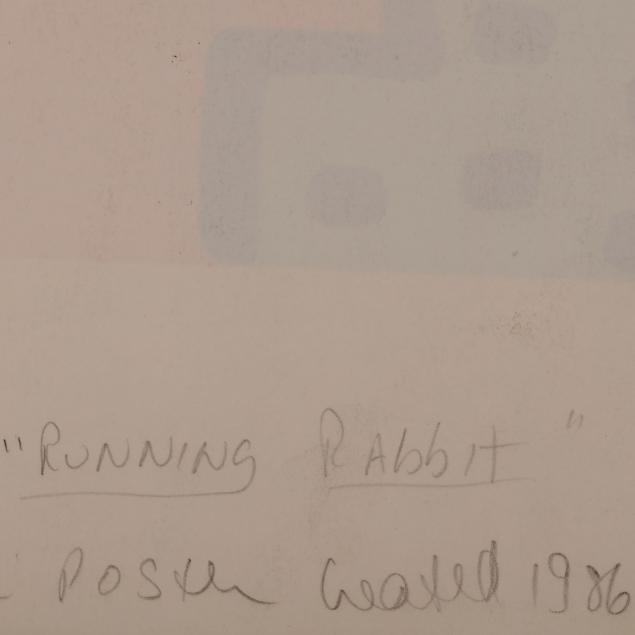 "RUNNING RAbbIt"
- Poster Created 1986